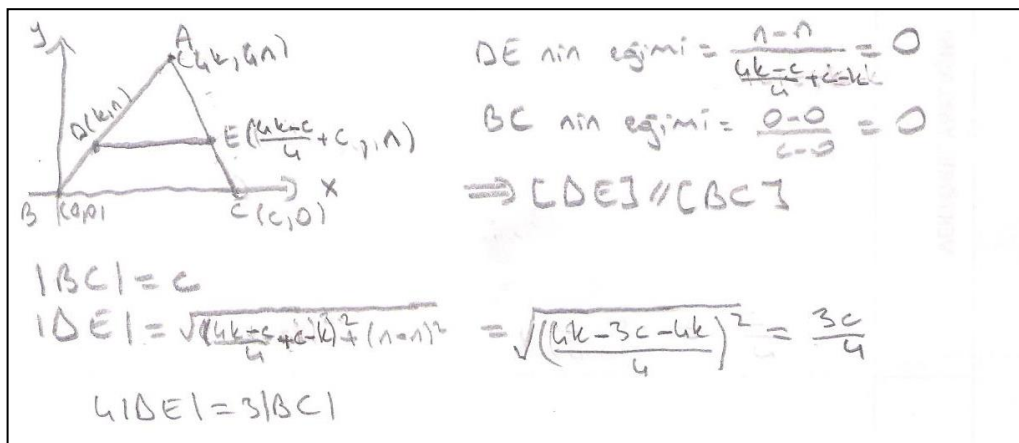 y
A
(4k, 4n)
D(k,n)
E(\frac{4k-c}{4}+c, n)
B (0,0)
C(c,0)
x
DE nin eğimi = \frac{n-n}{\frac{4k-c}{4}+c-k} = 0
BC nin eğimi = \frac{0-0}{c-0} = 0
⇒ [DE] // [BC]
|BC| = c
|DE| = \sqrt{(\frac{4k-c}{4}+c-k)^2+(n-n)^2} = \sqrt{(\frac{4k-3c-4k}{4})^2} = \frac{3c}{4}
4|DE| = 3|BC|